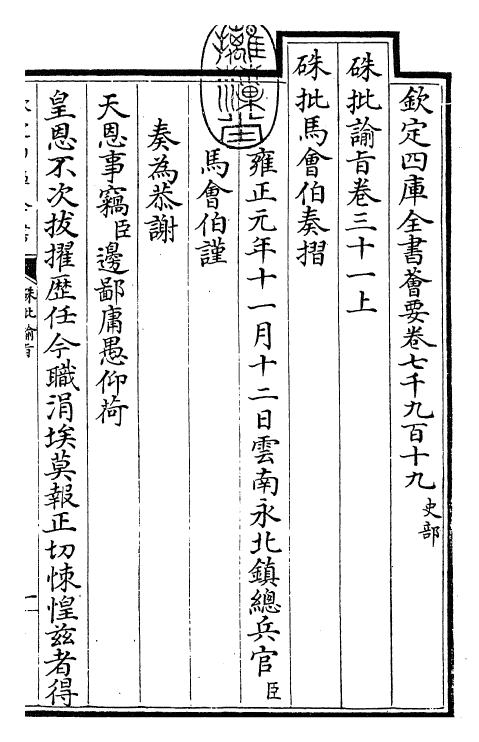 欽定四庫全書薈要卷七千九百十九 史部
硃批諭旨卷三十一上
硃批馬會伯奏摺
雍正元年十一月十二日雲南永北鎮總兵官臣
馬會伯謹
奏為恭謝
天恩事竊臣邊鄙庸愚仰荷
皇恩不次拔擢歷任今職涓埃莫報正切悚惶茲者得
硃批諭旨
一